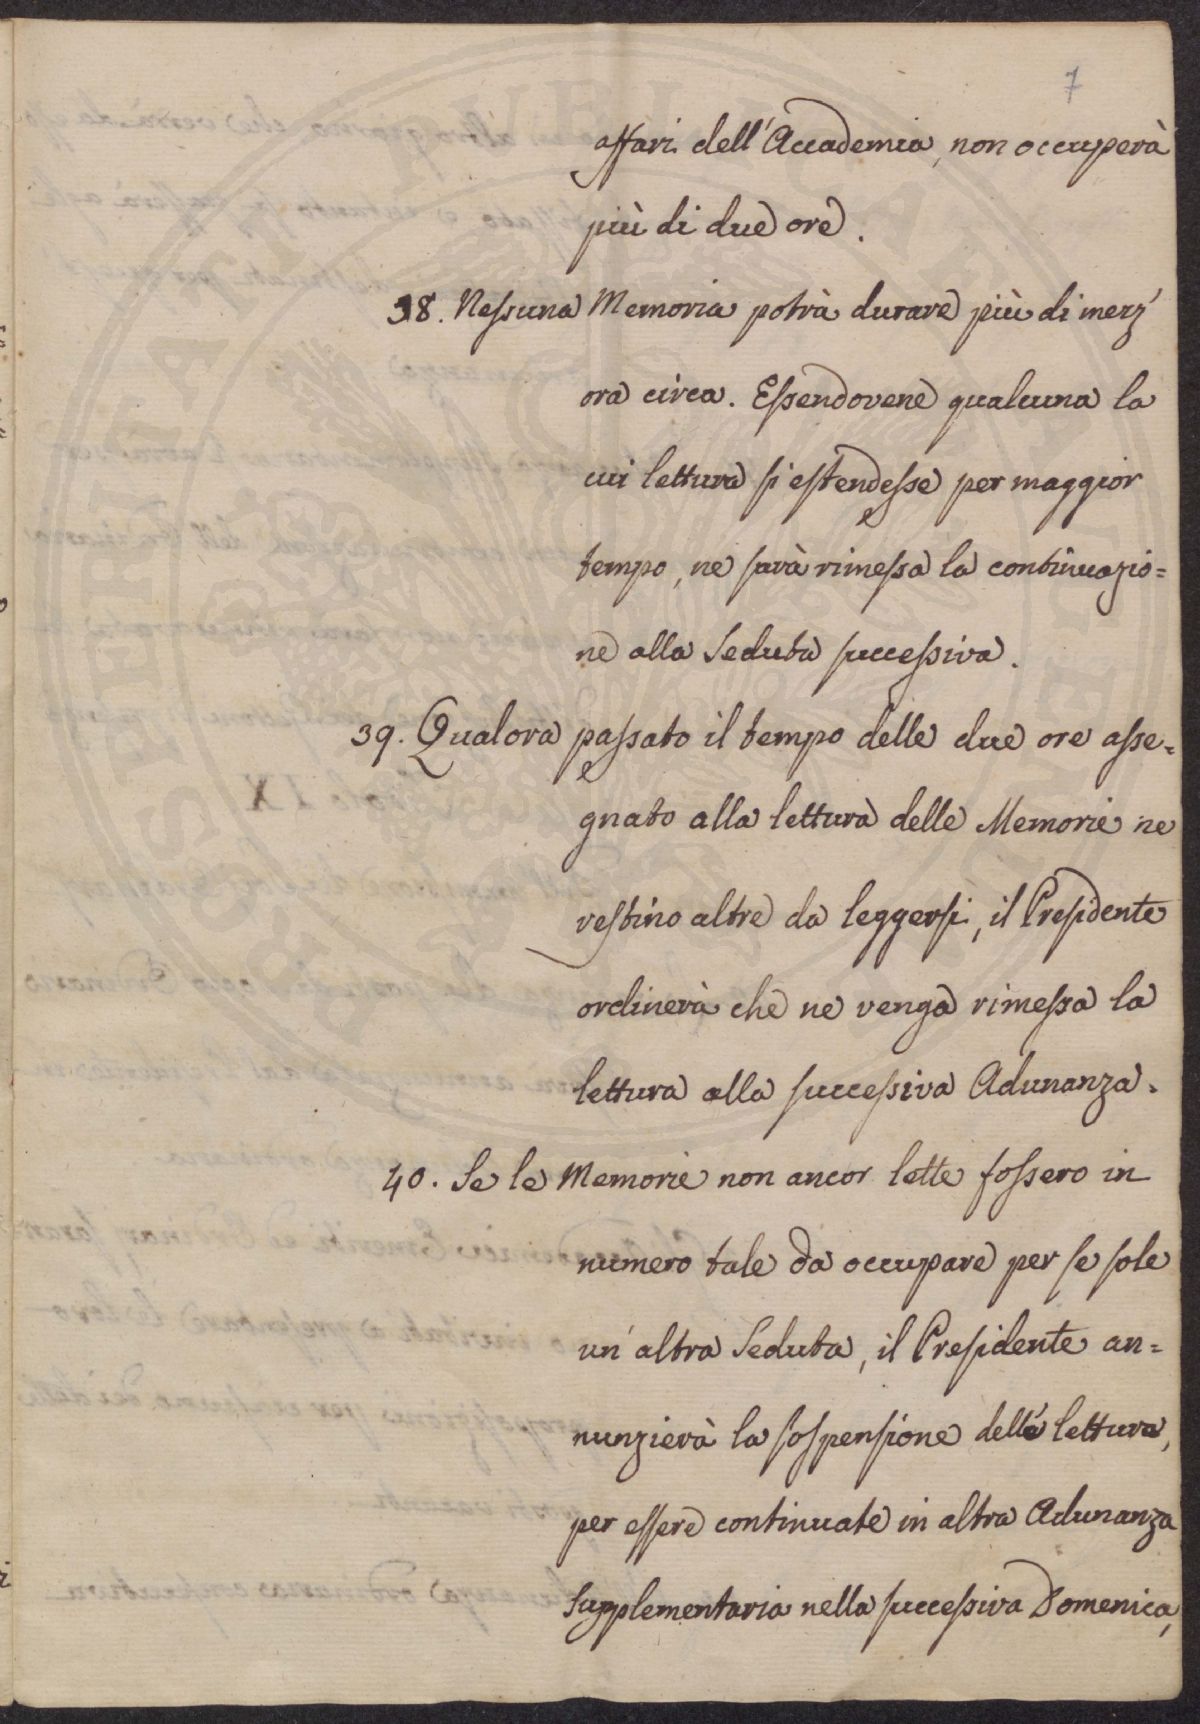 7
affari dell'Accademia, non occuperà
più di due ore.
38. Nessuna Memoria potrà durare più di mezz'
ora circa. Essendovene qualcuna la
cui lettura si estendesse per maggior
tempo, ne sarà rimessa la continuazio=
ne alla Seduta successiva.
39. Qualora passato il tempo delle due ore asse=
gnato alla lettura delle Memorie ne
restino altre da leggersi, il Presidente
ordinerà che ne venga rimessa la
lettura alla successiva Adunanza.
40. Se le Memorie non ancor lette fossero in
numero tale da occupare per se sole
un'altra Seduta, il Presidente an=
nunzierà la sospensione delle letture,
per essere continuate in altra Adunanza
Supplementaria nella successiva Domenica,